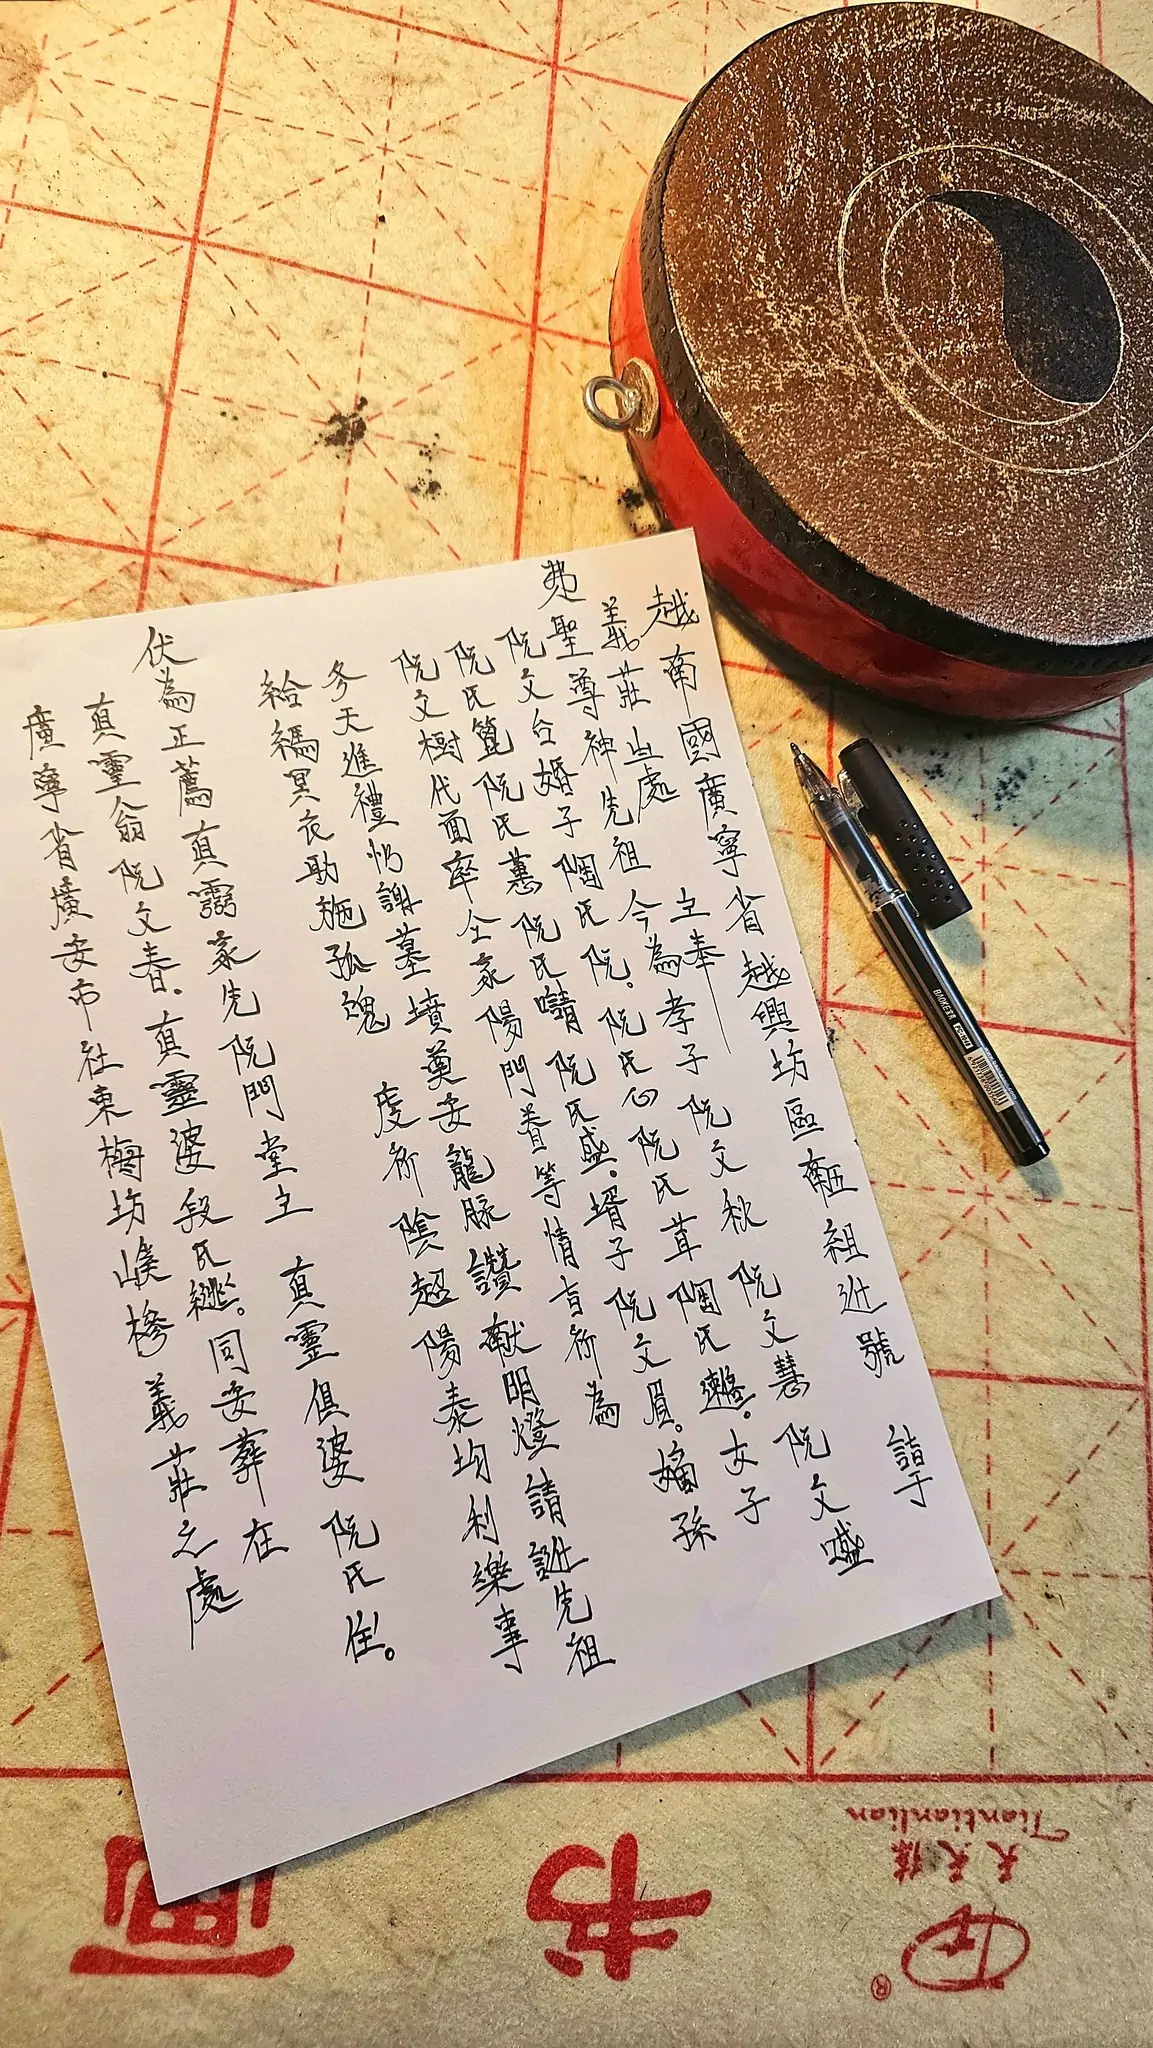 越南國廣寧省越興坊區𠄼組近號 詣于
義莊㞢處 主奉
聖尊神先祖 今為孝子阮文秋 阮文慧 阮文
阮文台婚子陶氏阮。阮氏心阮氏茸陶氏。女子
阮氏 阮氏蕙 阮氏 阮氏盛。壻子阮文眉。嫡孫
阮文樹代面率仝家陽門眷等情旨祈為
冬天進禮仍謝墓墳奠安龍脉讚献明燈請先祖
給冥衣助施孤魂 虔祈陰超陽泰均利樂事
伏為正薦真靈家先阮門堂上 真靈俱婆阮氏住。
真靈翁阮文春。真靈婆段氏。同安葬在
廣寧省廣安市社東梅坊義莊之處
BAOKE
書
畫
天天
Tiantianlian
®